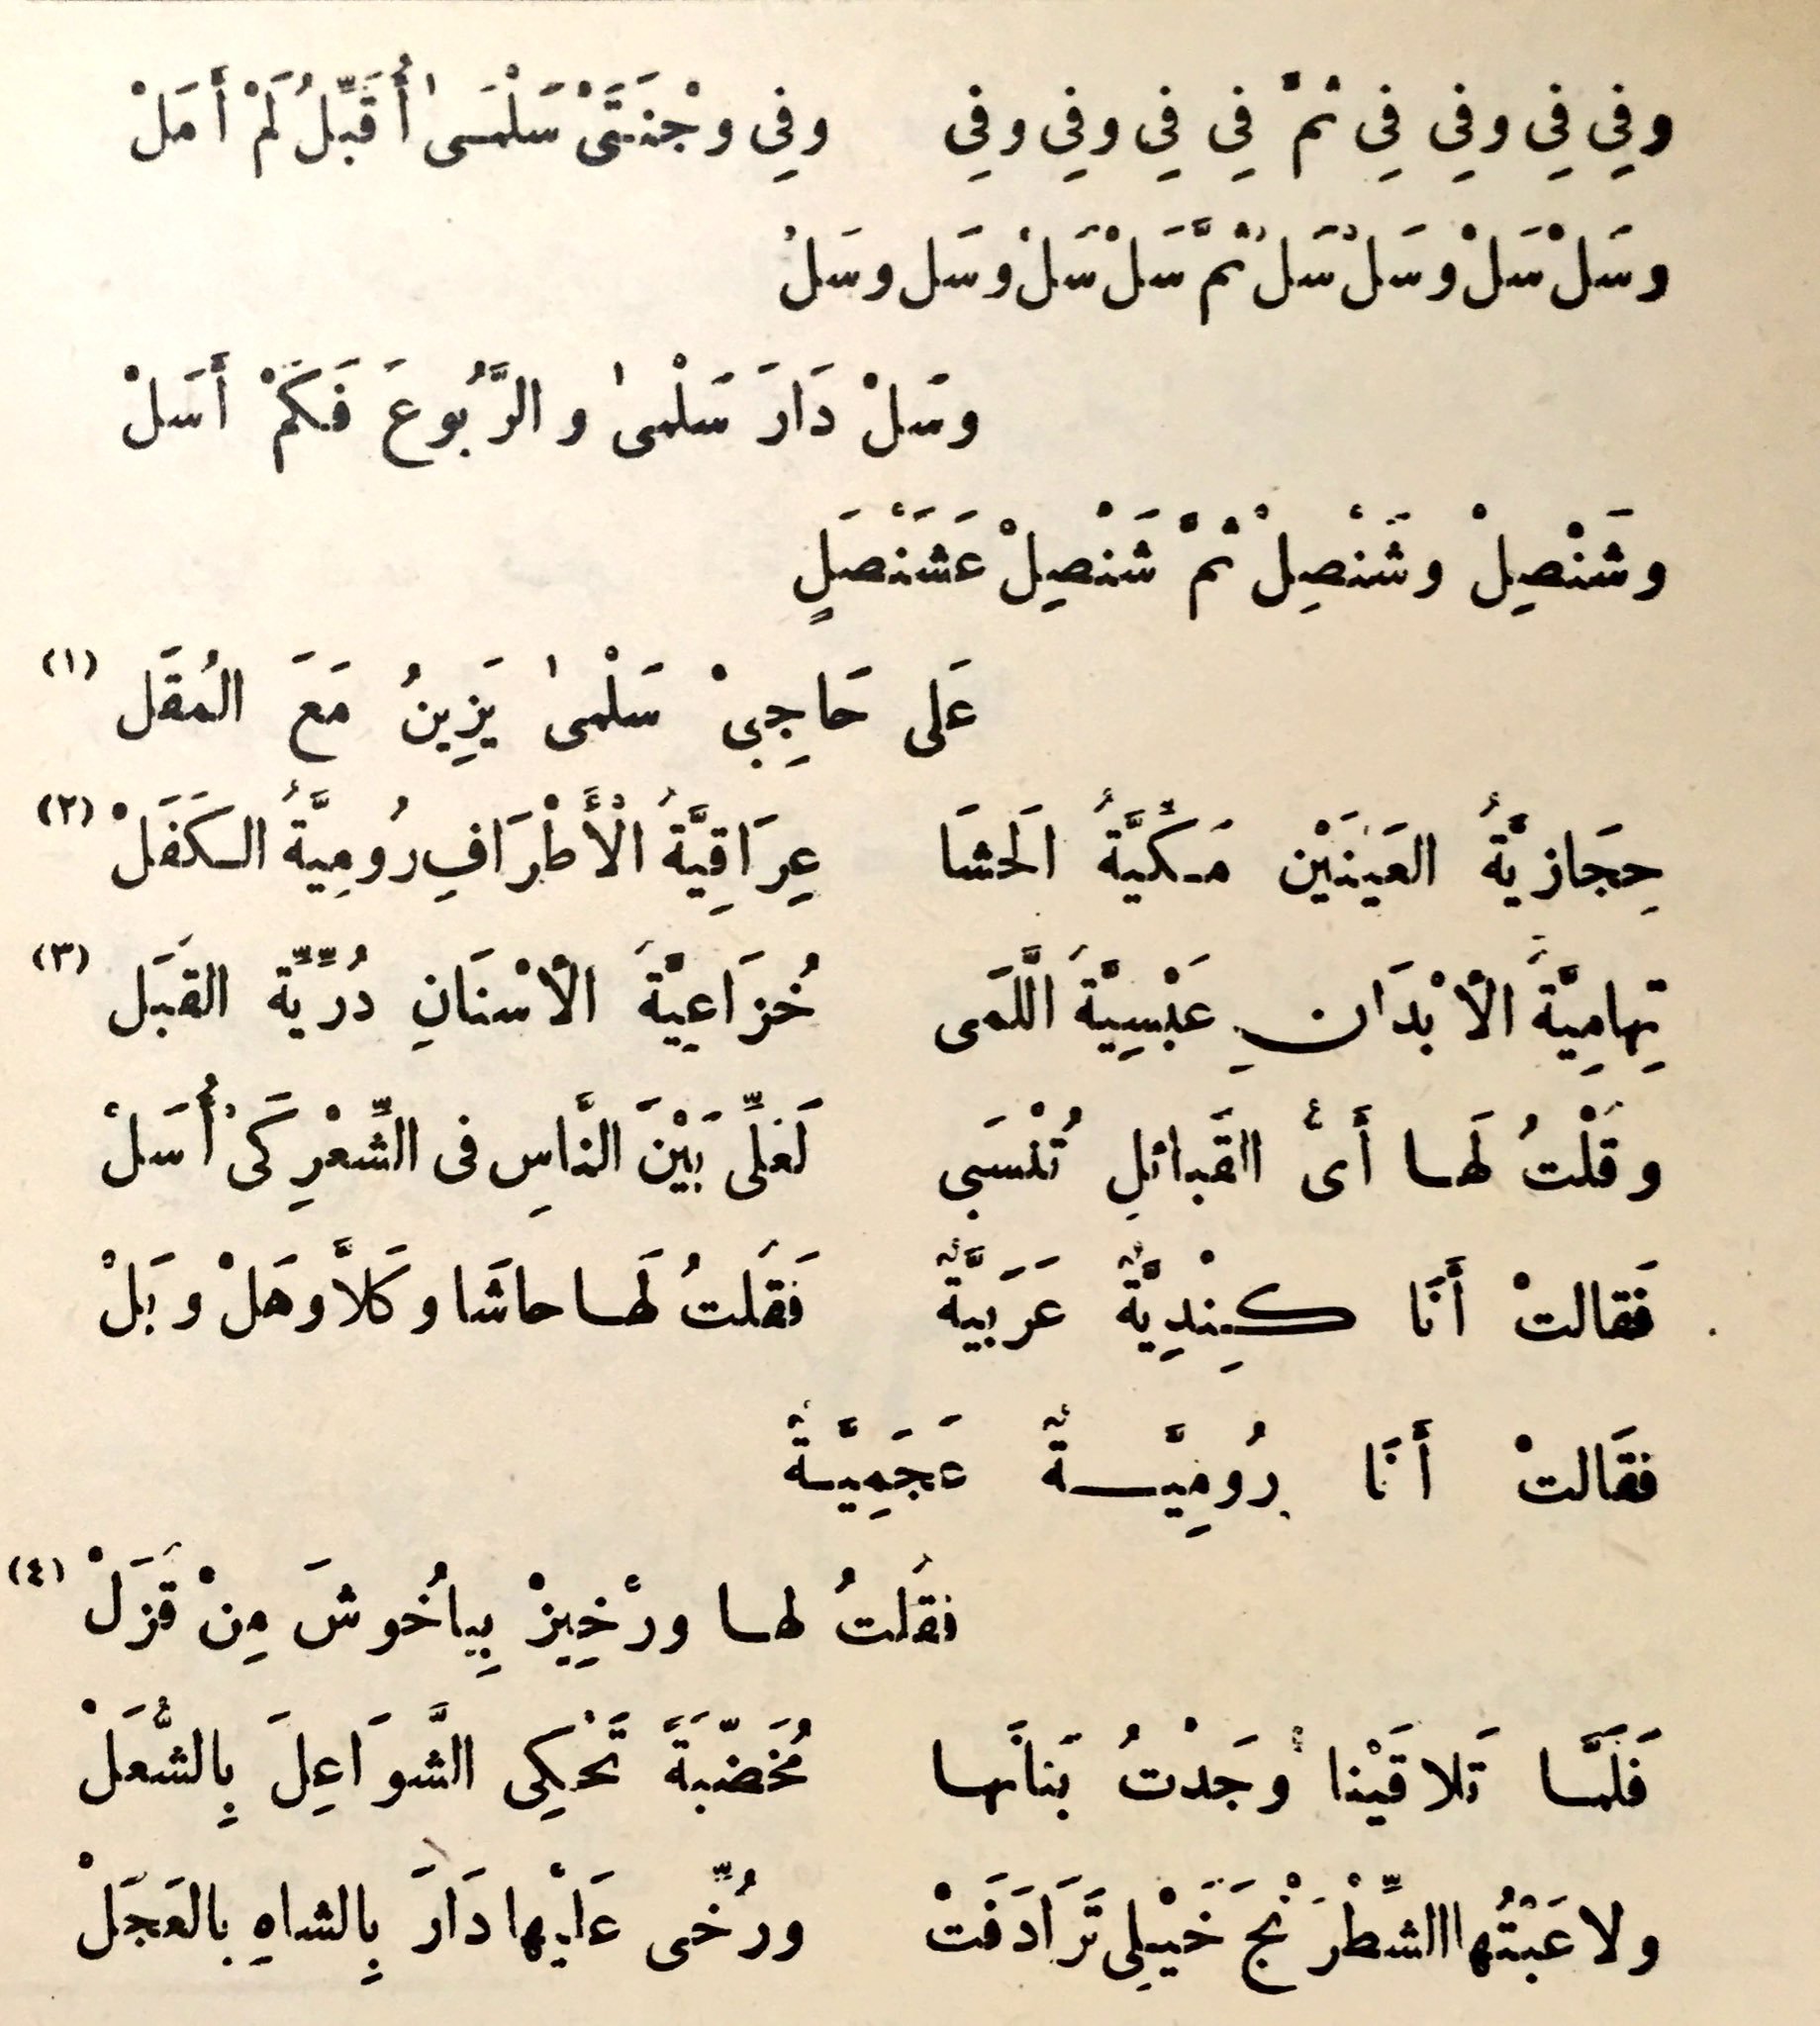 وفِي فِي وفِي فِي ثمَّ فِي فِي وفِي وفِي وفِي وجْنَتَيْ سَلْمَى أُقَبِّلُ لَمْ أَمَلْ
وسَلْ سَلْ وسَلْ سَلْ ثمَّ سَلْ سَلْ وسَل وسَلْ
وسَلْ دَارَ سَلْمى والرَّبُوعَ فَكَمْ أَسَلْ
وشَنْصِلْ وشَنْصِلْ ثمَّ شَنْصِلْ عَشَنْصَلٍ
عَلى حَاجِبيْ سَلْمى يَزِينُ مَعَ المُقَل (١)
حِجَازيَّةُ العَيْنَيْن مَكِّيَّةُ الَحشَا عِرَاقِيَّةُ الْأَطْرَافِ رُومِيَّةُ الكَفَلْ (٢)
تِهامِيَّةَ الأبْدَانِ عَبْسِيَّةَ اللَّمَى خُزَاعِيَّةَ الأسْنَانِ دُرِّيَّة القبَل (٣)
وقَلْتُ لَها أَىُّ القَبائلِ تُنْسَبى لَعَلِّى بَيْنَ النَّاسِ فى الشِّعْرِ كَىْ أُسَلْ
فَقالتْ أَنَا كِنْدِيَّةٌ عَرَبيَّةٌ فَقَلتُ لَها حاشَا وكَلاَّ وهَلْ وبَلْ
فقَالتْ أَنَا رُومِيَّةٌ عَجَمِيَّةٌ
فقَلتُ لها ورْخِيزْ بِياخُوشَ مِنْ قَزَلْ (٤)
فَلَمَّا تَلاقَيْنا وجَدْتُ بَنانَها مُخَضَّبَةً تَحْكِى الشَّوَاعِلَ بِالشُّعَلْ
ولاعَبْتُها الشِّطْرَنْجَ خَيْلِى تَرَادَفَتْ ورُخِّى عَلَيْها دَارَ بِالشاهِ بالعَجَلْ